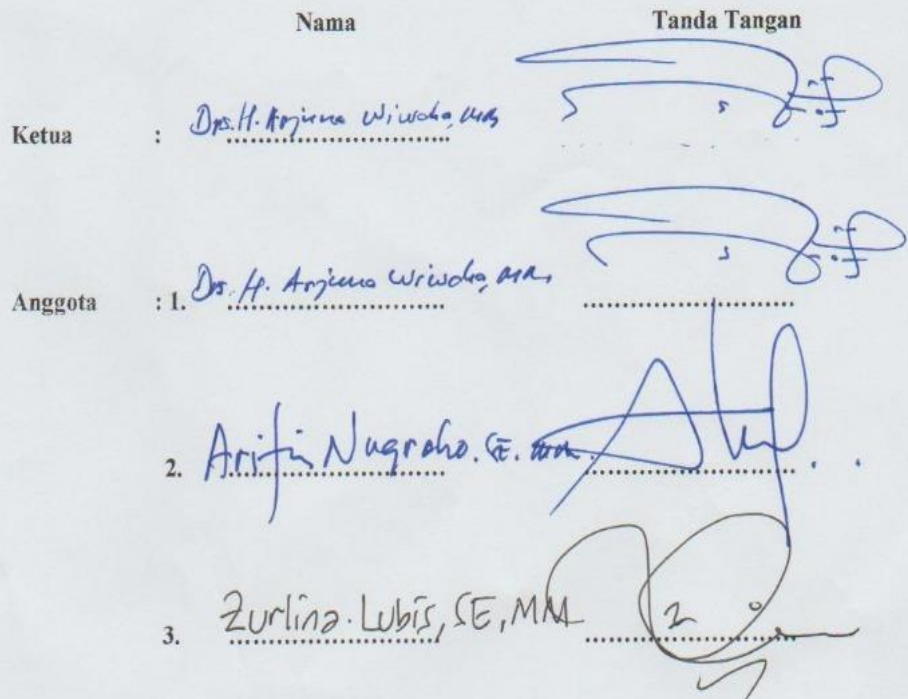 Nama Tanda Tangan
Ketua : Drs. H. Arjuna Wiwoho, MM
Anggota : 1. Drs. H. Arjuna Wiwoho, MM
2. Arifin Nugroho. SE. MM.
3. Zurlina. Lubis, SE, MM